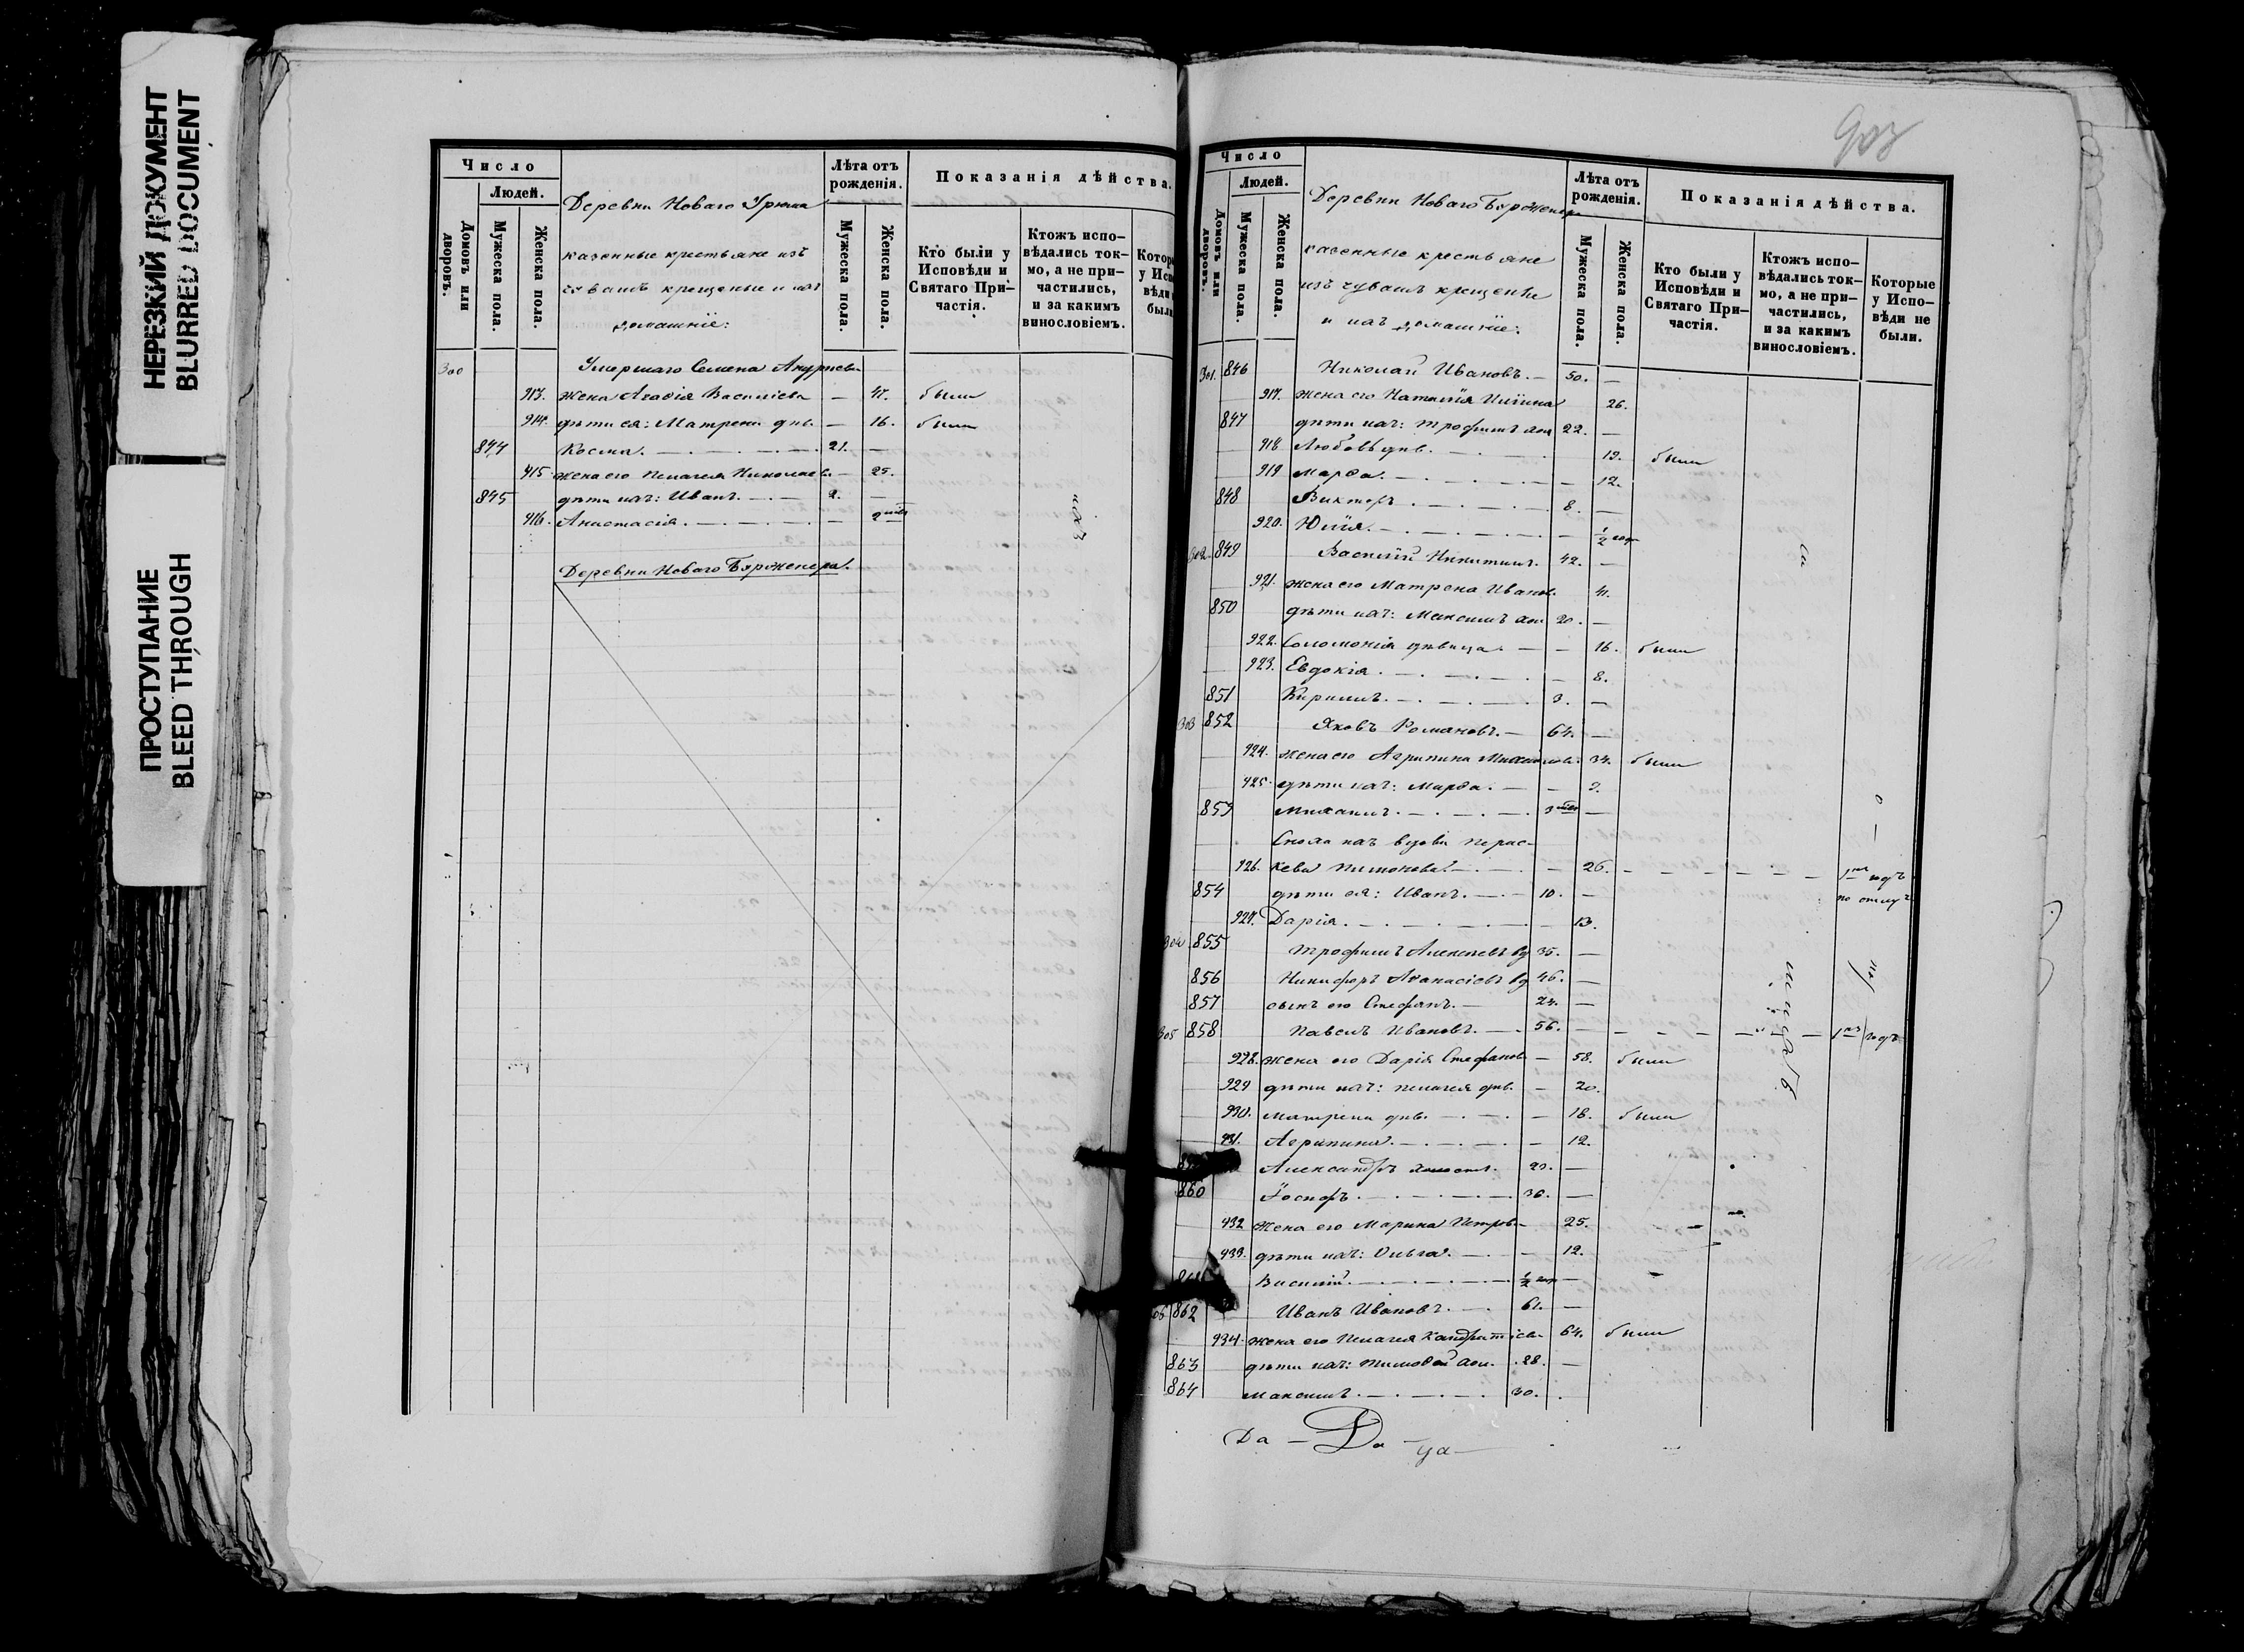 НЕРЕЗКИЙ ДОКУМЕНТ
BLURRED DOCUMENT
ПРОСТУПАНИЕ
BLEED THROUGH
Число
Людей.
Домовъ или дворовъ.
Мужеска пола.
Женска пола.
Деревни Новаго Урюма
казенные крестьяне изъ
чувашъ крещеные и ихъ
домашніе:
Лѣта отъ рожденія.
Мужеска пола.
Женска пола.
Показанія дѣйства.
Кто были у Исповѣди и Святаго При-частія.
Ктожъ испо-вѣдались ток-мо, а не при-частились, и за какимъ винословіемъ.
300 Умершаго Семена
913. жена Агафія Василіева — 47. были
914. дѣти ея: Матрена дѣв. — 16. были
844 Косма. 21. —
915. жена его Пелагея Николаев. — 25.
845 дѣти ихъ: Иванъ. 2. —
916. Анастасія. — 2
Деревни Новаго
903
Число
Людей.
Домовъ или дворовъ.
Мужеска пола.
Женска пола.
Деревни Новаго
казенные крестьяне
изъ чувашъ крещеные
и ихъ домашніе:
Лѣта отъ рожденія.
Мужеска пола.
Женска пола.
Показанія дѣйства.
Кто были у Исповѣди и Святаго При-частія.
Ктожъ испо-вѣдались ток-мо, а не при-частились, и за какимъ винословіемъ.
Которые у Испо-вѣди не были.
301. 846 Николай Ивановъ. — 50. —
917. жена его Наталія 26.
847 дѣти ихъ: Трофимъ хол 22. —
918 Любовь дѣв. 19. были
919 Марфа. — 12.
848 Викторъ. 8. —
920. Юлія. — ½ год
302 849 Василій Никитинъ. 42. —
921. жена его Матрена Иванов. 41.
850 дѣти ихъ: Максимъ хол 20. —
922. Соломонія дѣвица. — 16. были
923. Евдокія. — 8.
851 Кириллъ. 3. —
303 852 Яковъ Романовъ. — 64. —
924. жена его Агрипина 34. были
925. дѣти ихъ: Марфа. — 9.
853 Михаилъ. 3 —
Сноха ихъ вдова Парас-
926. кева — 26. 1 годъ
854 дѣти ея: Иванъ. 10. — по отлуч
927. Дарія. — 13.
304 855 Трофимъ Алексѣевъ вд 35. —
856 Никифоръ Аѳанасіевъ вд 46. —
857 сынъ его Стефанъ. — 24. —
305 858 Павелъ Ивановъ. — 56. — 1 годъ
928. жена его Дарія Стефанов — 58. были
929 дѣти ихъ: Пелагея дѣв. — 20.
930. Матрена дѣв. — 18. были
931. Агрипина. — 12.
Александръ холост. 20. —
860 Іосифъ. 30. —
932 жена его Марина Петров — 25.
933. дѣти ихъ: Ольга. — 12.
Василій. ½ год —
862 Иванъ Ивановъ. 61. —
934. жена его Пелагея 64. были
863 дѣти ихъ: Тимофей хол. 28. —
864 Максимъ. 30.